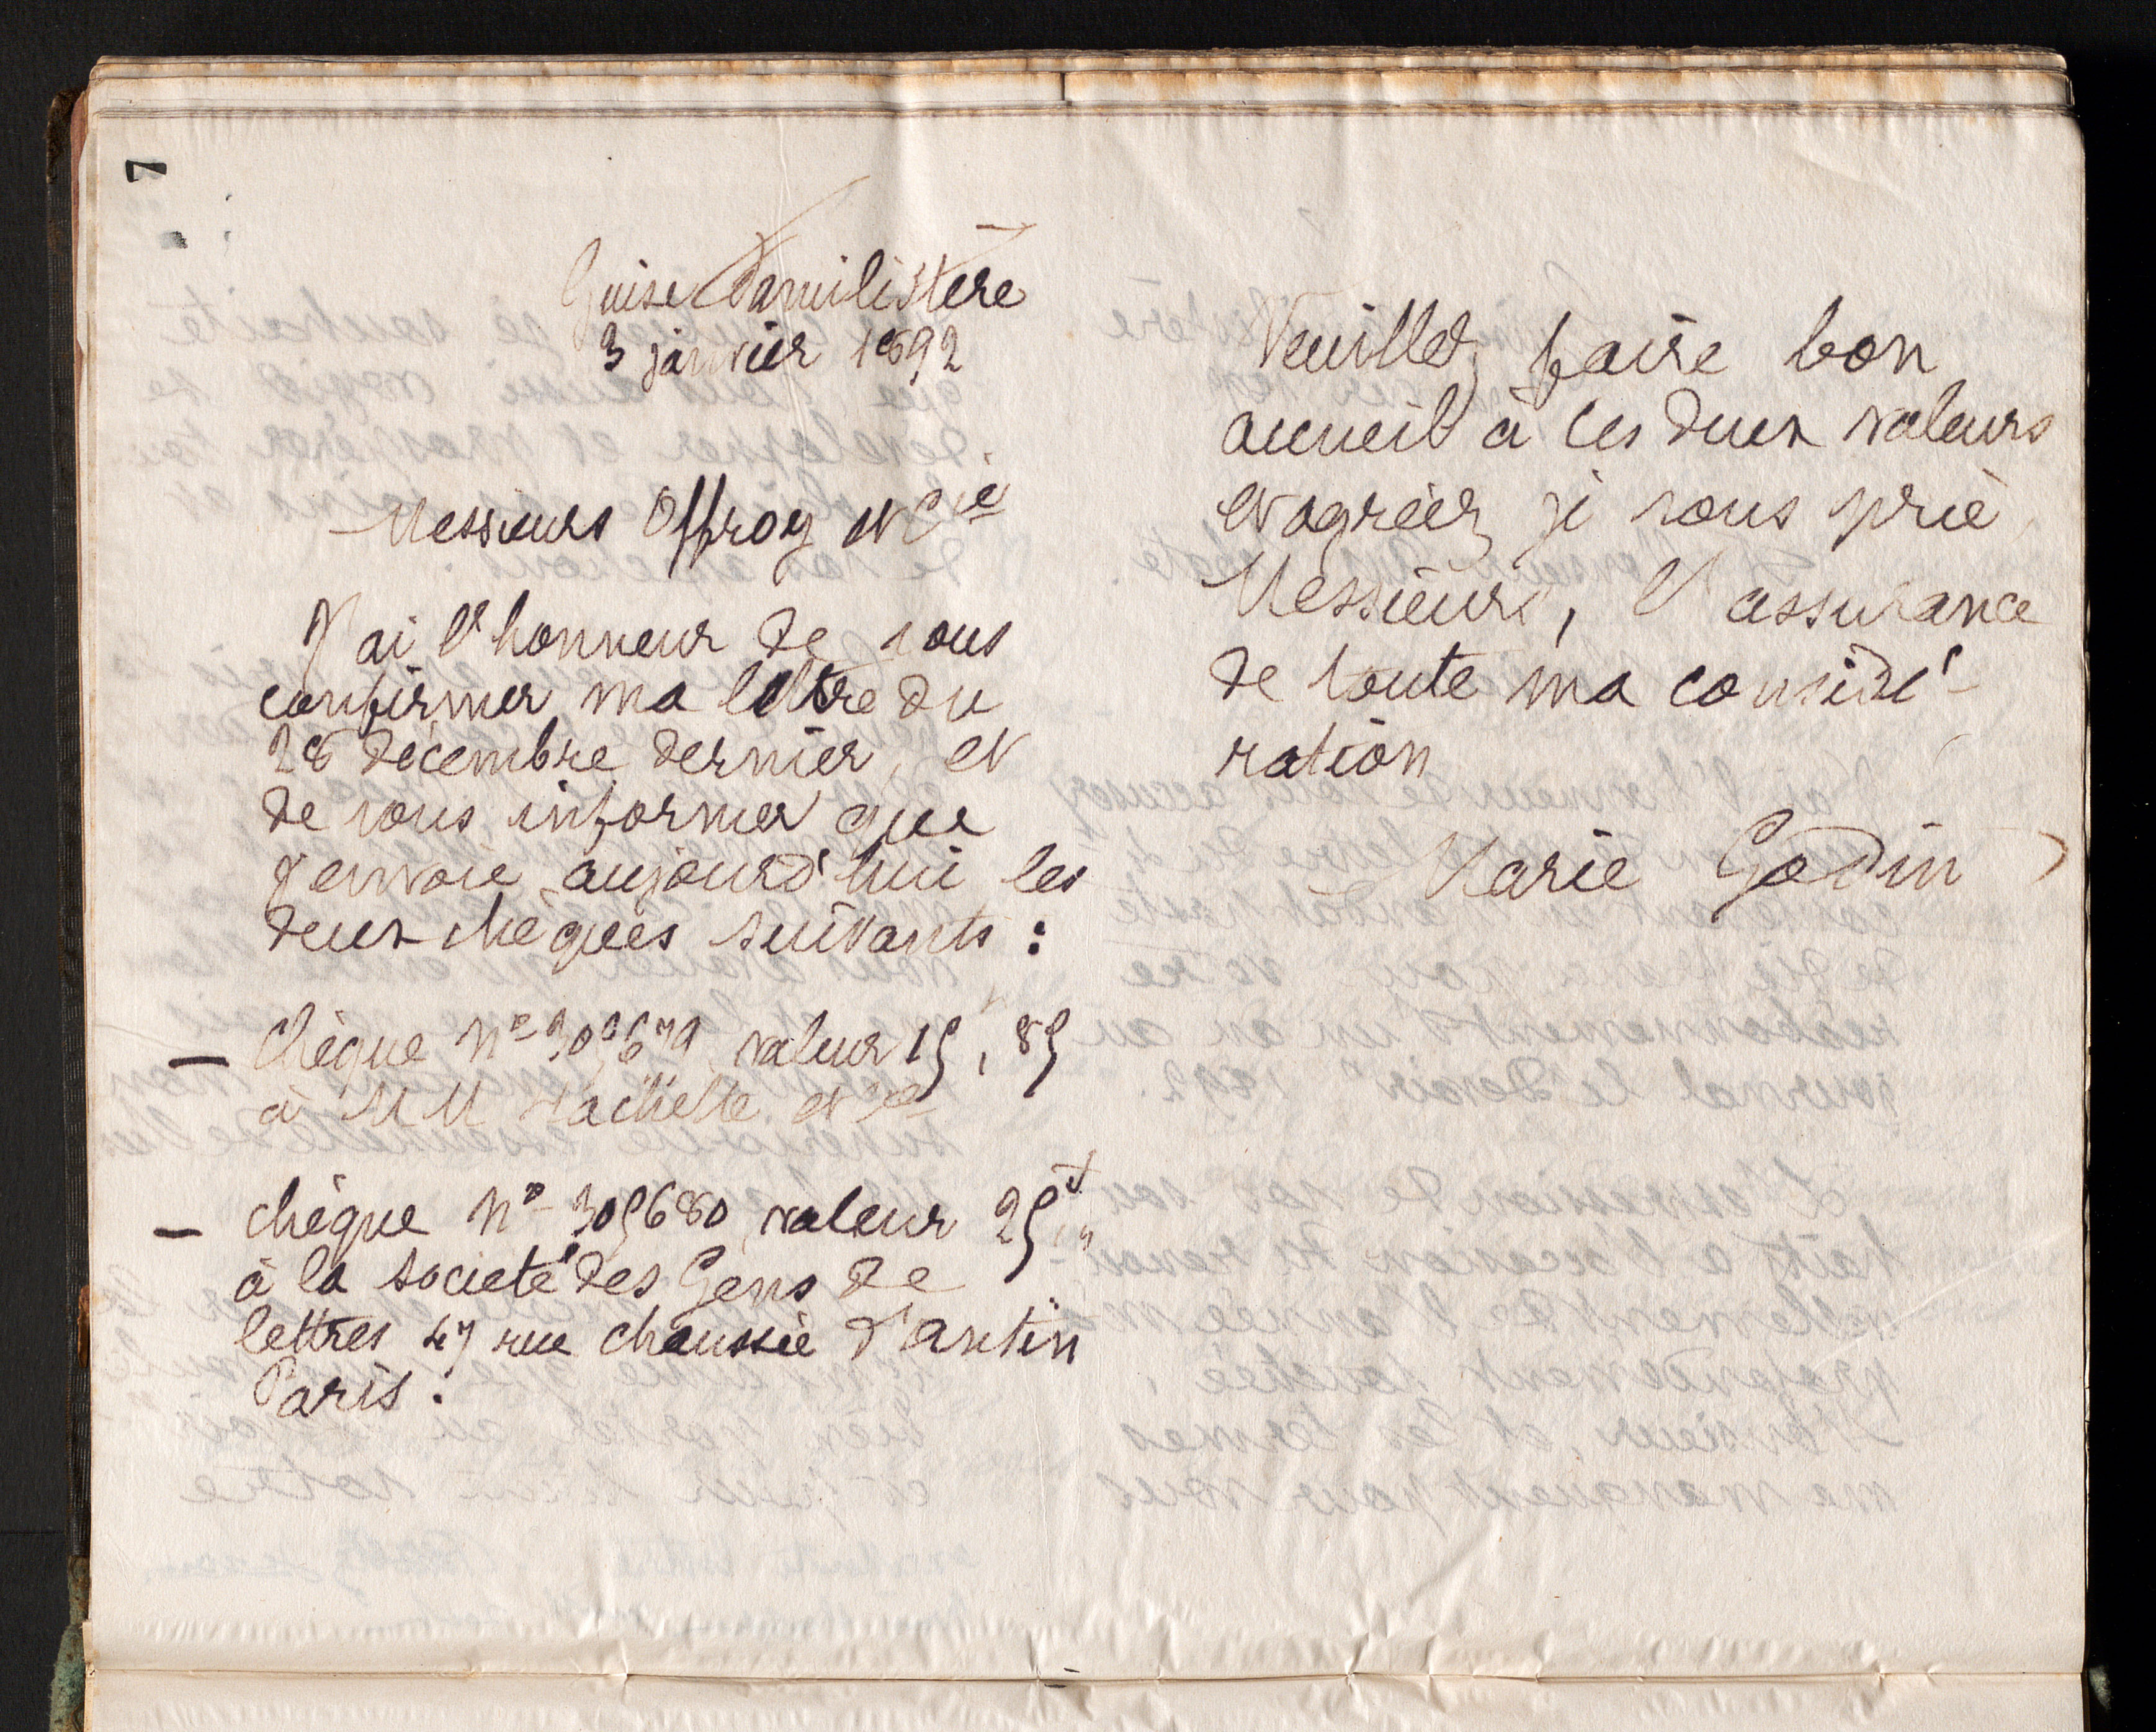 7
Guise Familistère
3 janvier 1892
Messieurs Offroy et Cie
J'ai l'honneur de vous
confirmer ma lettre du
28 décembre dernier, et
de vous informer que
j'envoie aujourd'hui les
deux chèques suivants :
— Chèque No 305679, valeur 15, 85
à MM Hachette et Cie
— chèque No 305680, valeur 25f, "
à la société des Gens de
lettres 47 rue chaussée d'antin
Paris.
Veuillez faire bon
accueil à ces deux valeurs
et agréer, je vous prie,
Messieurs, l'assurance
de toute ma considé-
ration
Marie Godin